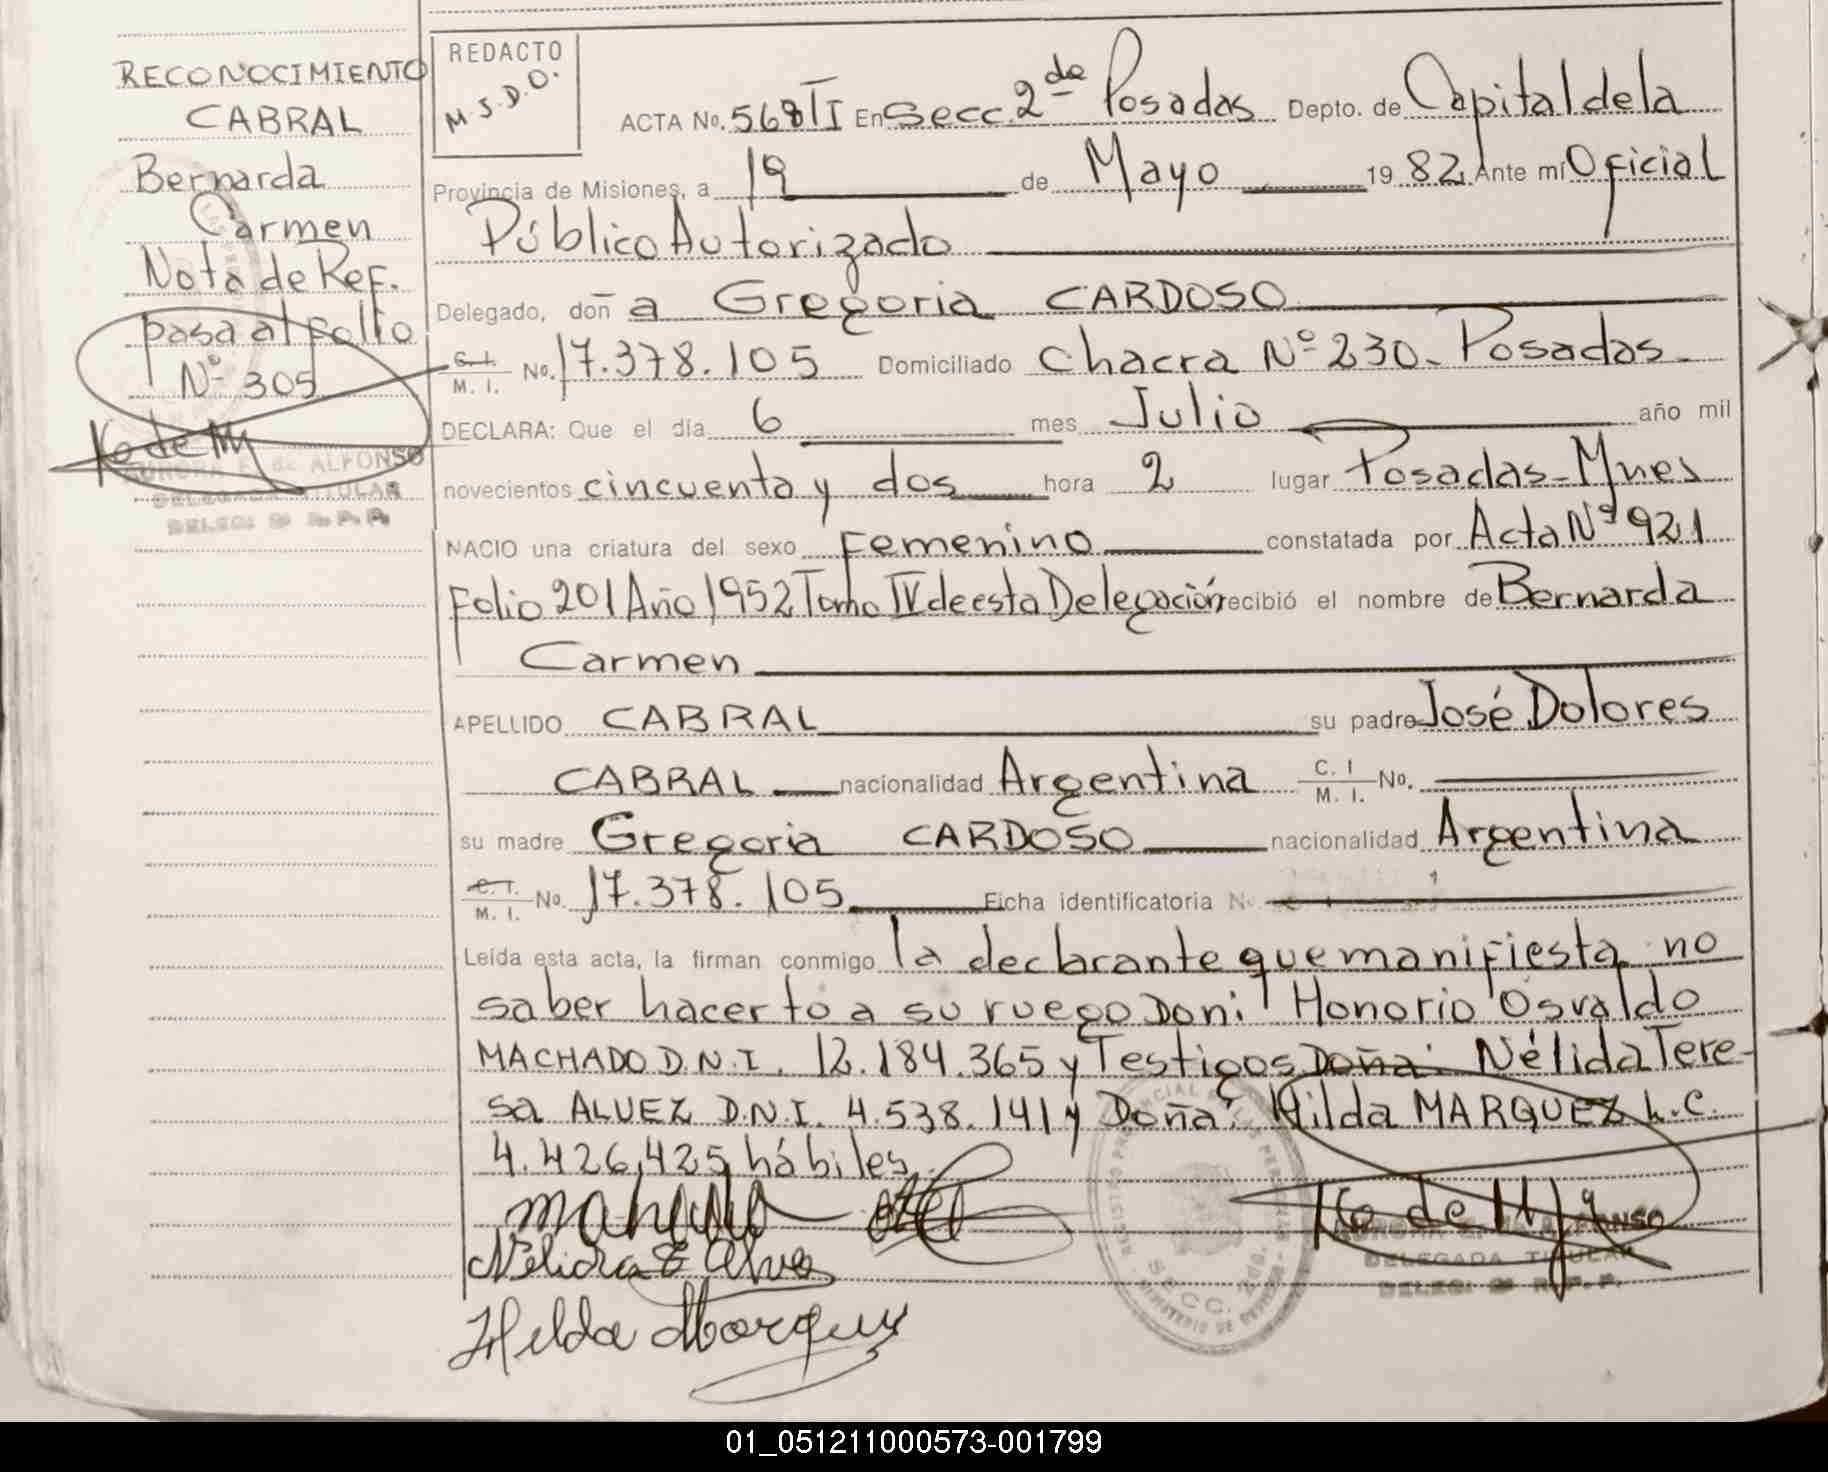 RECONOCIMIENTO
CABRAL
Bernarda
Carmen
Nota de Ref.
pasa al follio
Nº 305
AURORA E. de ALFONSO
DELEGADA TITULAR
DELEG. 2ª R.P.P.
REDACTO
M.S.D.O.
ACTA No. 568 TI En Secc. 2da Posadas Depto. de Capital de la
Provincia de Misiones, a 19 de Mayo 1982, Ante mí Oficial
Público Autorizado
Delegado, doña Gregoria CARDOSO
C.I. M. I. No. 17.378.105 Domiciliado Chacra Nº 230 - Posadas -
DECLARA: Que el día 6 mes Julio año mil
novecientos cincuenta y dos hora 2 lugar Posadas - Mnes
NACIO una criatura del sexo Femenino constatada por Acta Nº 921
Folio 201 Año 1952 Tomo IV de esta Delegación recibió el nombre de Bernarda
Carmen
APELLIDO CABRAL su padre José Dolores
CABRAL nacionalidad Argentina C. I M. I. No.
su madre Gregoria CARDOSO nacionalidad Argentina
C.I. M. I. No. 17.378.105 Ficha identificatoria N
Leída esta acta, la firman conmigo la declarante que manifiesta no
saber hacerlo a su ruego Don: Honorio Osvaldo
MACHADO D.N.I. 12.184.365 y Testigos Doña: Nélida Tere-
sa ALVEZ D.N.I. 4.538.141 y Doña: Hilda MARQUEZ L.C.
4.426,425 hábiles.
Nélida
Hilda Marquez
SECC. 2da.
AURORA E. de ALFONSO
DELEGADA TITULAR
DELEG. 2ª R.P.P.
01_051211000573-001799